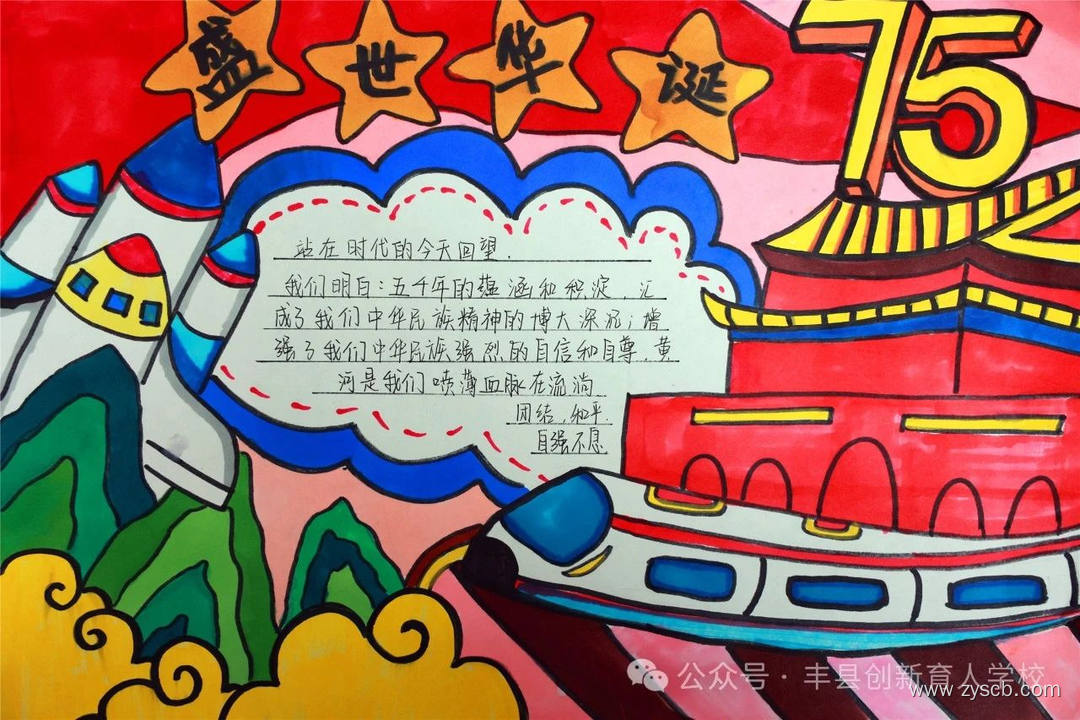 盛世华诞
75
站在时代的今天回望.
我们明白:五千年的蕴涵和积淀,汇
成了我们中华民族精神的博大深沉;增
强了我们中华民族强烈的自信和自尊,黄
河是我们喷薄血脉在流淌
团结,和平.
自强不息
公众号·丰县创新育人学校
www.zyscb.com